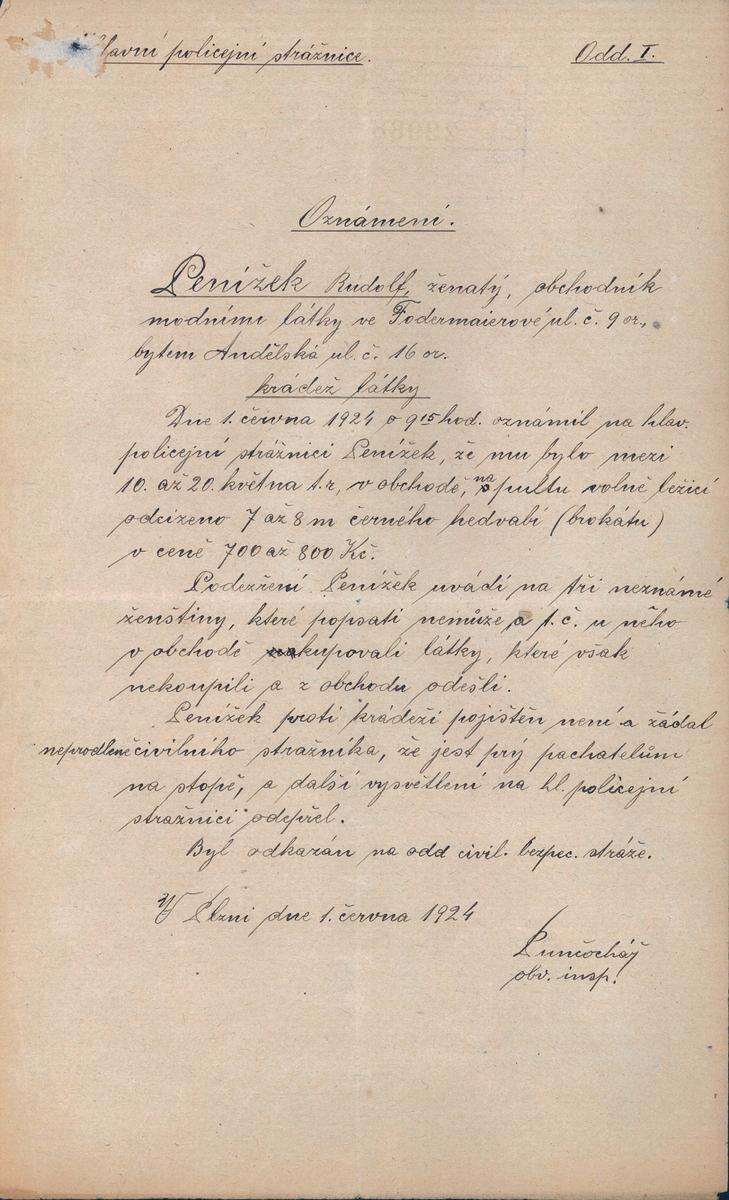 Hlavní policejní strážnice.
Odd. I.
Oznámení.
Penížek Rudolf, ženatý, obchodník
modními látky ve Fodermaierové ul. č. 9 or.,
bytem Andělská ul. č. 16 or.
krádež látky
Dne 1. června 1924 o 9 15 hod. oznámil na hlav.
policejní strážnici Penížek, že mu bylo mezi
10. až 20. května t. r., v obchodě, na pultu volně ležící
odcizeno 7 až 8 m černého hedvábí (brokátu)
v ceně 700 až 800 Kč.
Podezření Penížek uvádí na tři neznámé
ženštiny, které popsati nemůže a t. č. u něho
v obchodě kupovali látky, které však
nekoupili a z obchodu odešli.
Penížek proti krádeži pojištěn není a žádal
neprodleně civilního strážníka, že jest prý pachatelům
na stopě, a další vysvětlení na hl. policejní
strážnici odepřel.
Byl odkazán na odd civil. bezpeč. stráže.
V Plzni dne 1. června 1924
Punčochář
obv. insp.